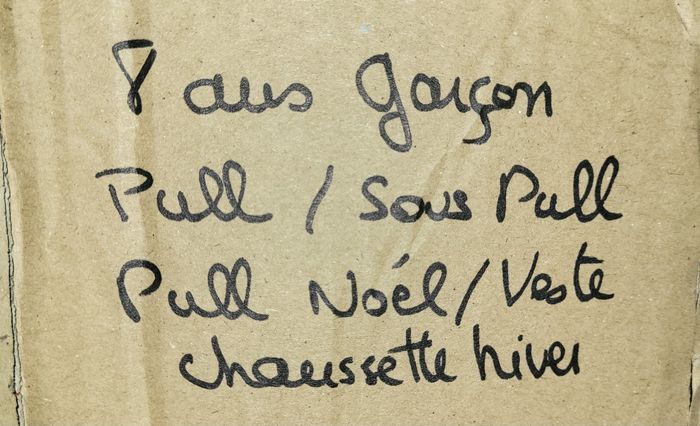 8 ans garçon
Pull / Sous Pull
Pull Noël / Veste
chaussette hiver